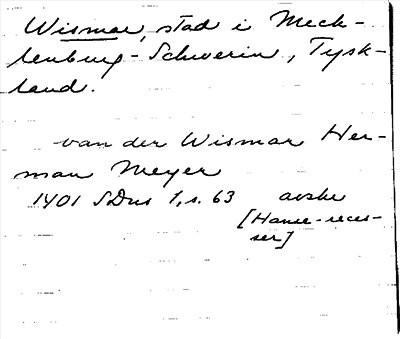 Wismar, stad i Meck-
lenburg-Schwerin, Tysk-
land.
van der Wismar Her-
man Meyer
1401 SDns 1, s. 63 avskr
[Hanse-reces-
ser]